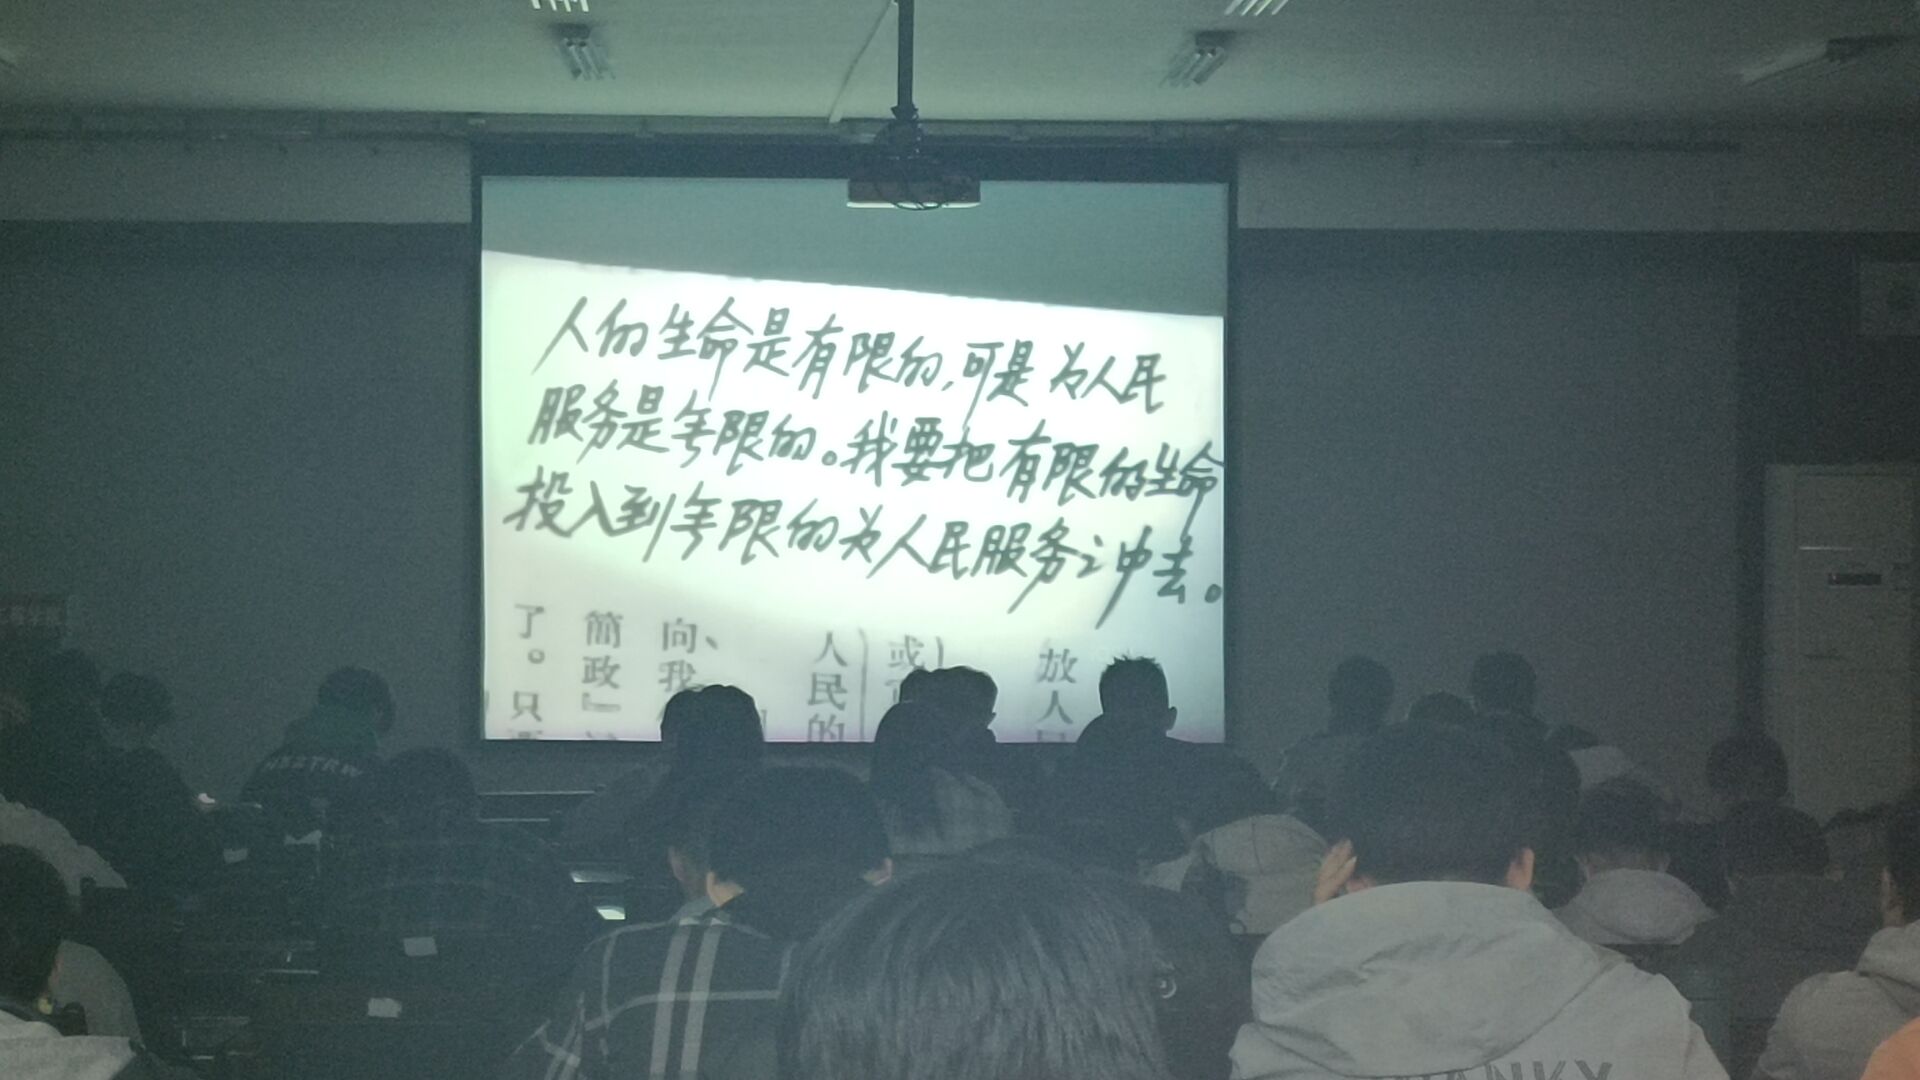 人的生命是有限的,可是为人民
服务是无限的。我要把有限的生命
投入到无限的为人民服务之中去。
放人
或
人民的
向、我
简政』
了。只